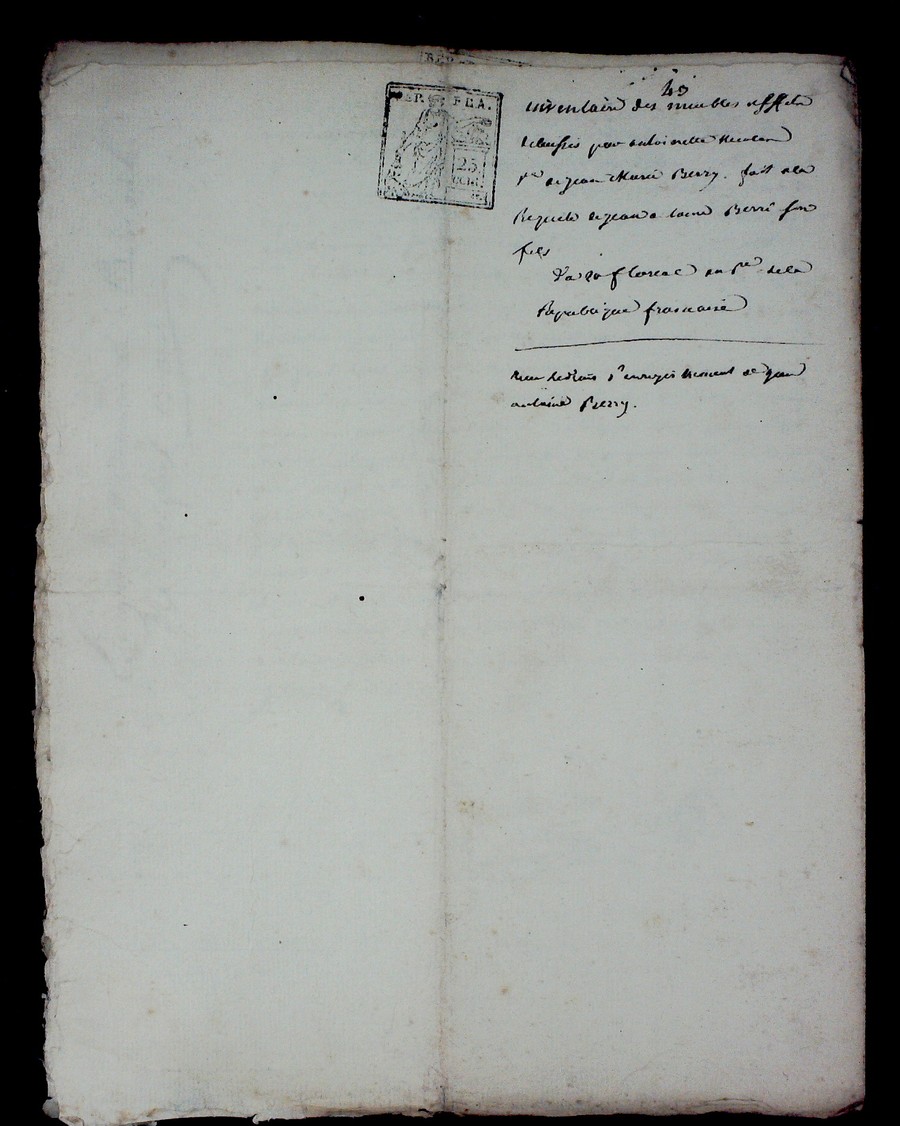 REP. FRA.
25
CEN.
43
inventaire des meubles effets
delaissés par antoinette
ve de jean Marie Berry. fait a la
Requete de jean antoine Berré son
fils
Du 20 floreal an 8e de la
Republique francaise
de jean
antoine Berry.